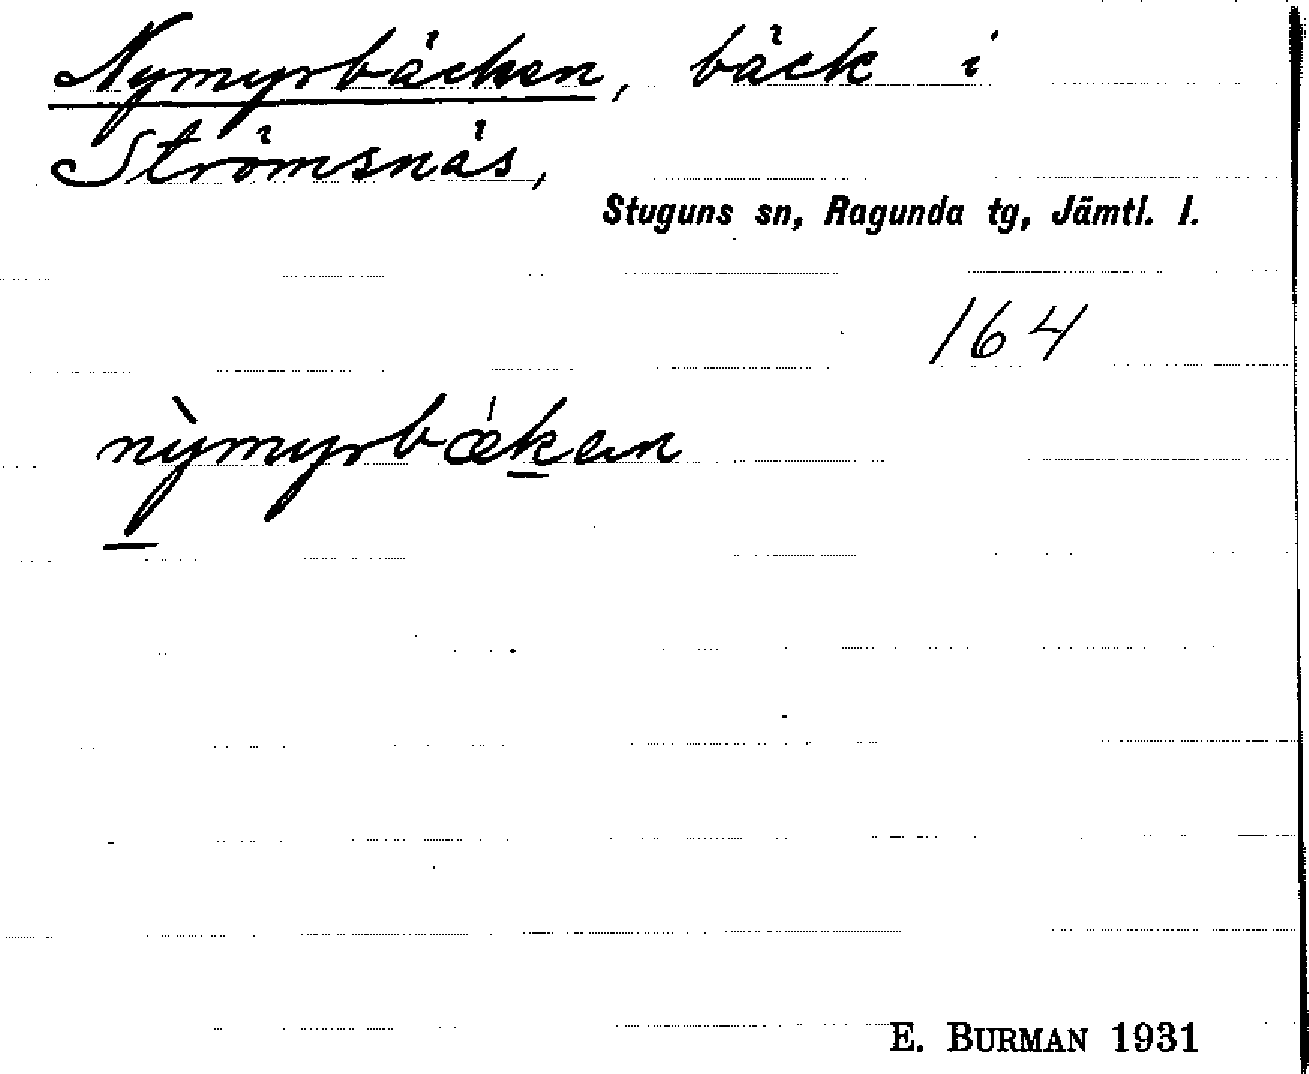 Nymyrbäcken, bäck i
Strömsnäs,
Stuguns sn, Ragunda tg, Jämtl. l.
164
nỳmyrbǽken
E. BURMAN 1931